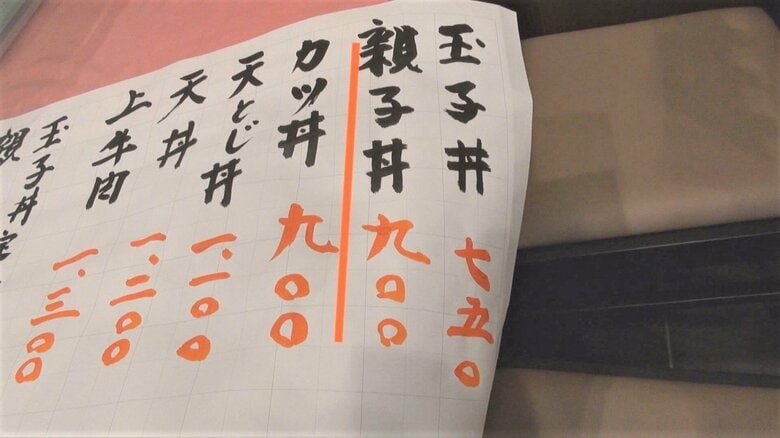 玉子丼 七五〇
親子丼 九〇〇
カツ丼 九〇〇
天とじ丼 一、一〇〇
天丼 一、二〇〇
上牛肉 一、三〇〇
玉子丼定
親